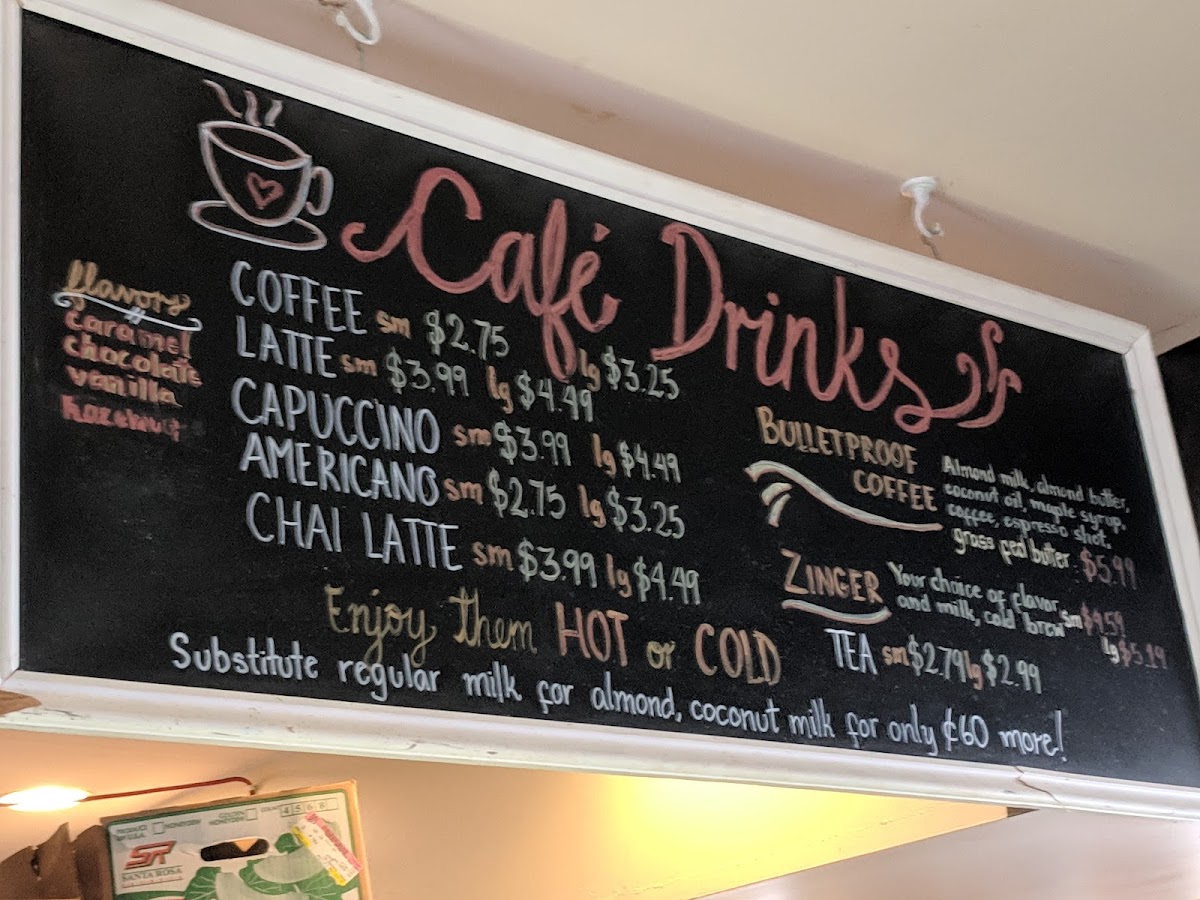 Café Drinks
flavors
caramel
chocolate
vanilla
hazelnut
COFFEE sm $2.75 lg $3.25
LATTE sm $3.99 lg $4.49
CAPUCCINO sm $3.99 lg $4.49
AMERICANO sm $2.75 lg $3.25
CHAI LATTE sm $3.99 lg $4.49
Enjoy them HOT or COLD
BULLETPROOF
COFFEE
Almond milk, almond butter,
coconut oil, maple syrup,
coffee, espresso shot,
grass fed butter $5.99
ZINGER
Your choice of flavor
and milk, cold brew sm $4.59
lg $5.19
TEA sm $2.79 lg $2.99
Substitute regular milk for almond, coconut milk for only ¢60 more!
PRODUCE
OF U.S.A.
HONEYDEW
GOLDEN
HONEYDEW
COUNT 4 5 6 8
SR
SANTA ROSA